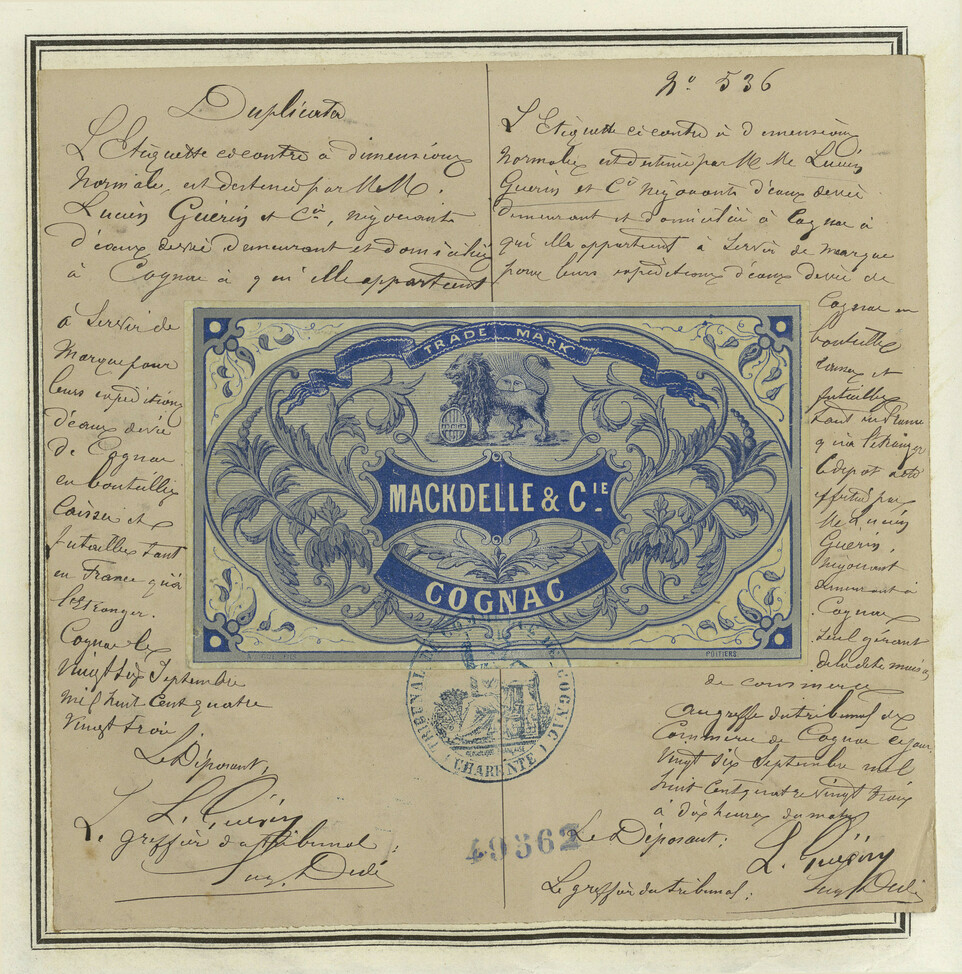 Duplicata
L'Etiquette ci contre à dimensions
Normale, est destinée par M M.
Lucien Guérin et Cie, négociants
d'eaux de vie demeurant et domiciliés
à Cognac à qui elle appartient
à Servir de
Marque pour
leurs expéditions
d'eaux de vie
de Cognac
en bouteilles
Caisses et
futailles tant
en France qu'à
l'Etranger.
Cognac le
Vingt Six Septembre
mil huit Cent quatre
Vingt trois
Le Déposant,
L. Guérin
L. greffier du tribunal:
No 536
L'Etiquette ci contre à dimensions
Normales est destinée par M Me Lucien
Guerin et Cie Négociants d'eaux de vie
demeurant et domiciliés à Cognac à
qui elle appartient à Servir de marque
pour leurs expéditions d'eaux de vie de
Cognac en
bouteilles
caisses et
futailles
tant en France
qu'à l'étranger
Le dépot a été
effectué par
Me Lucien
Guerin,
Négociant
demeurant à
Cognac
Seul gérant
de la dite maison
de commerce
au greffe du tribunal de
Commerce de Cognac ce jour
Vingt Six Septembre mil
huit Cent quatre Vingt trois
à dix heures du matin
Le Déposant:
L. Guérin
Le greffier du tribunal:
TRADE MARK
MACKDELLE & CIE
COGNAC
POITIERS
TRIBUNAL DE COMMERCE DE COGNAC
(CHARENTE)
49362